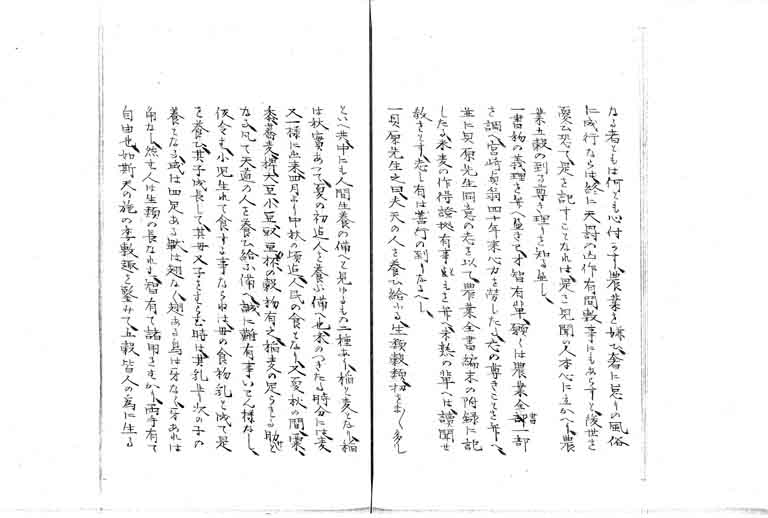 なる者ともは何とも心付かす農業を嫌ひ奢に長しの風俗
に成行ならは終に天罰の凶作有間敷事にもあらすと後世を
憂ひ恐て是を記すことなれは是を見聞の人本心に立かへり農
業五穀の到る尊き理りを知るへし
一書物の義理を弁へ兼さる才智有輩願くは農業全書一部
を調へ宮崎貞翁四十年来心力を労したる志の尊きことを弁へ
並に貝原先生同意の志を以て農業全書編末の附録に記
したる米麦の作得證拠有事ともを弁へ未熟の輩へは讀聞せ
教さとす志し有は善行の到りなるへし
一貝原先生之曰夫天の人を養ひ給ふる生類穀類物を多く多し
といへ共中にも人間生養の備へと見ゆるもの二種あり稲と麦となり稲
は秋実あつて夏の初迄人を養ふ備へ也米のつきたる時分には麦
又一様に出来四月より中秋の頃迄人民の食となり又夏秋の間粟
黍蕎麦稗大豆小豆豇豆樣の穀物有之稲麦の足らさる助と
なる凡て天道の人を養ひ給ふ備へ誠に難有事いはん様なし
仮令も小児生れて食する事ならねは母の食物乳と成て是
を養ひ其子成長して其母又子をはらむ時は其乳より次の子の
養となる或は四足ある獣は翅なく翅ある鳥は牙なく牙あれは
角なし然に人は生類の長なれは智有て諸用さむかり両手有て
自由也如斯天の施の季敷趣を鑒みて五穀皆人の為に生る